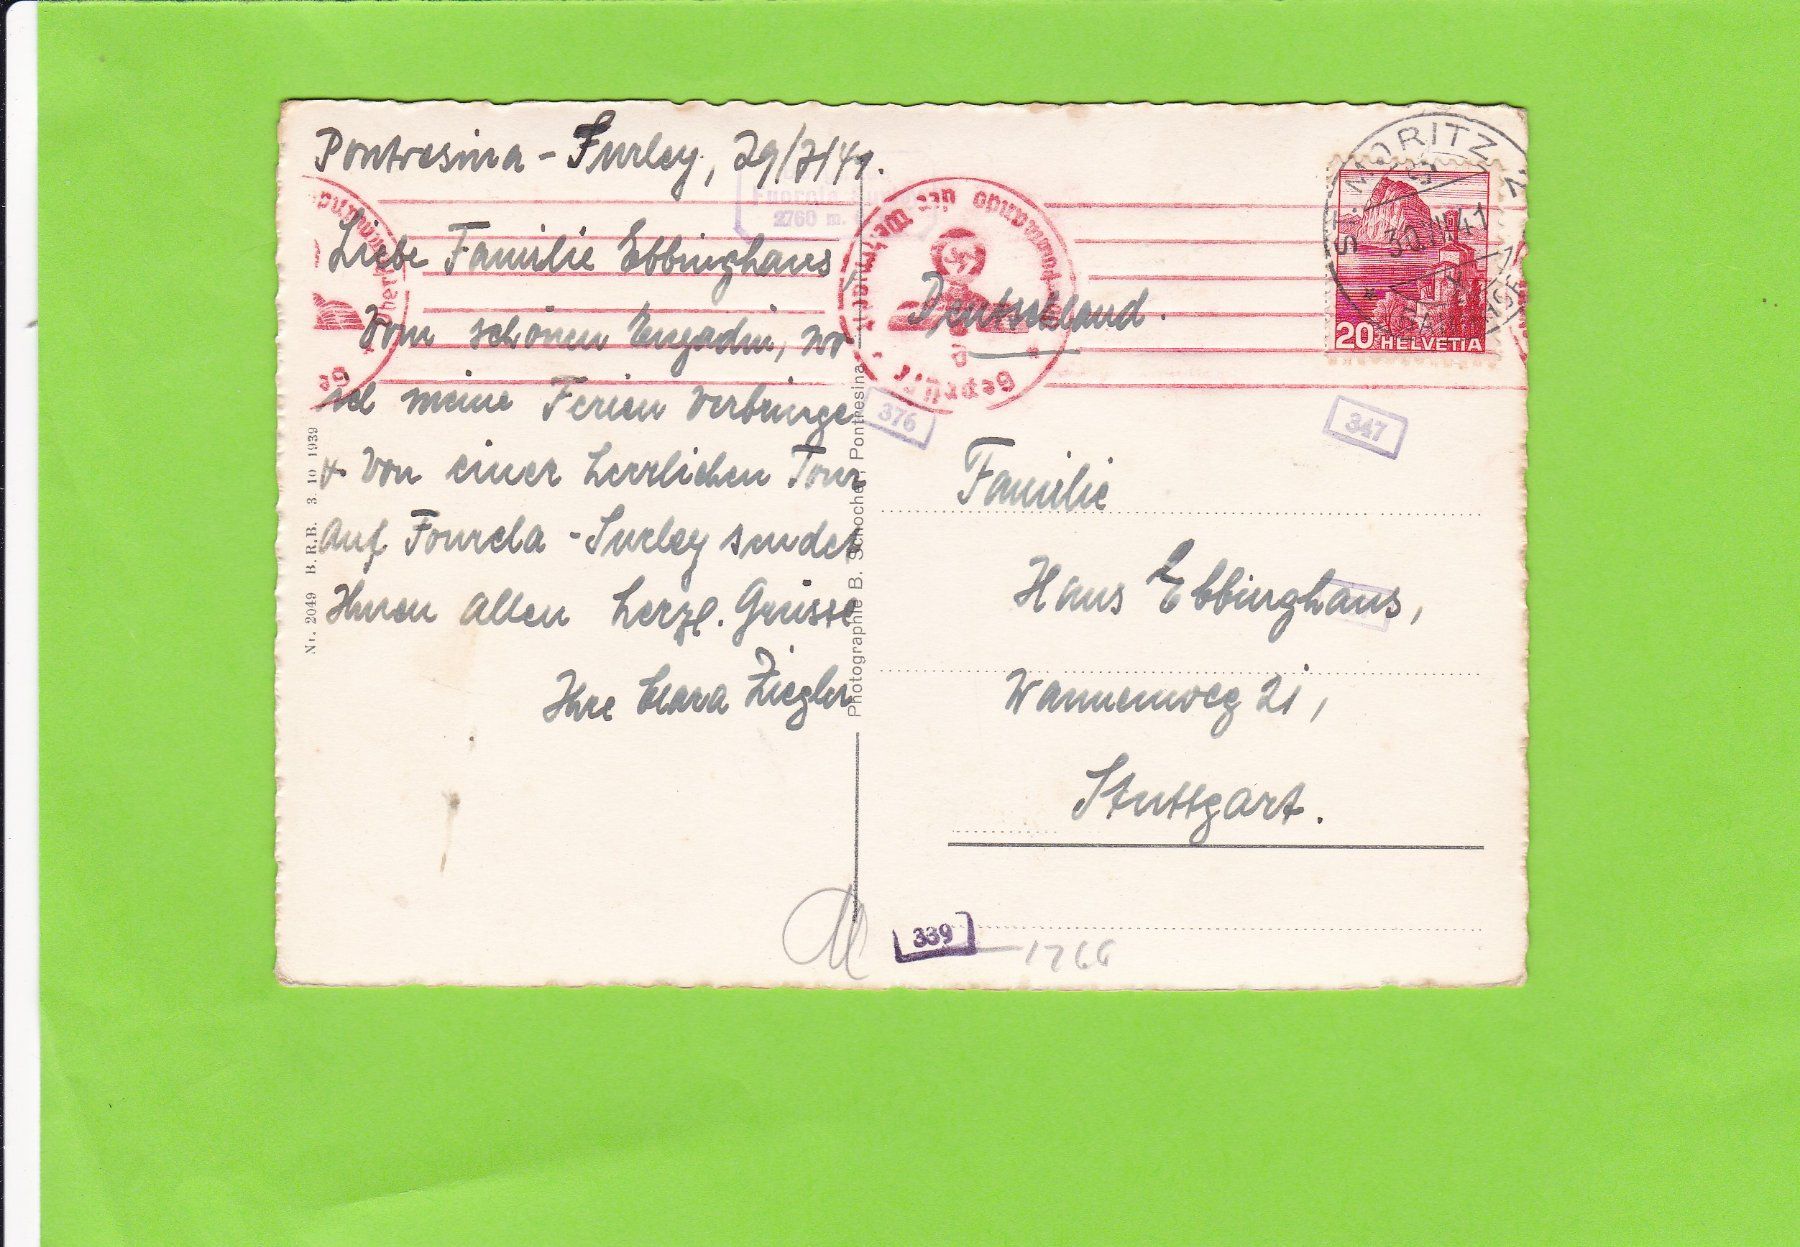 Pontresina - Surley, 29/7/41.
Liebe Familie Ebbinghaus
Vom schönen Engadin, wo
ich meine Ferien verbringe
& von einer herrlichen Tour
auf Fourcla - Surley sendet
Ihnen allen herzl. Grüsse
Ihre Clara Ziegler
Nr. 2049 B.R.B. 3. 10 1939
Photographie B. Schocher, Pontresina
2760 m.
Oberkommando der Wehrmacht
Geprüft
Deutschland.
ST. MORITZ
30.VII.41
20 HELVETIA
376
347
Familie
Hans Ebbinghaus,
Wannenweg 21,
Stuttgart.
339
1766